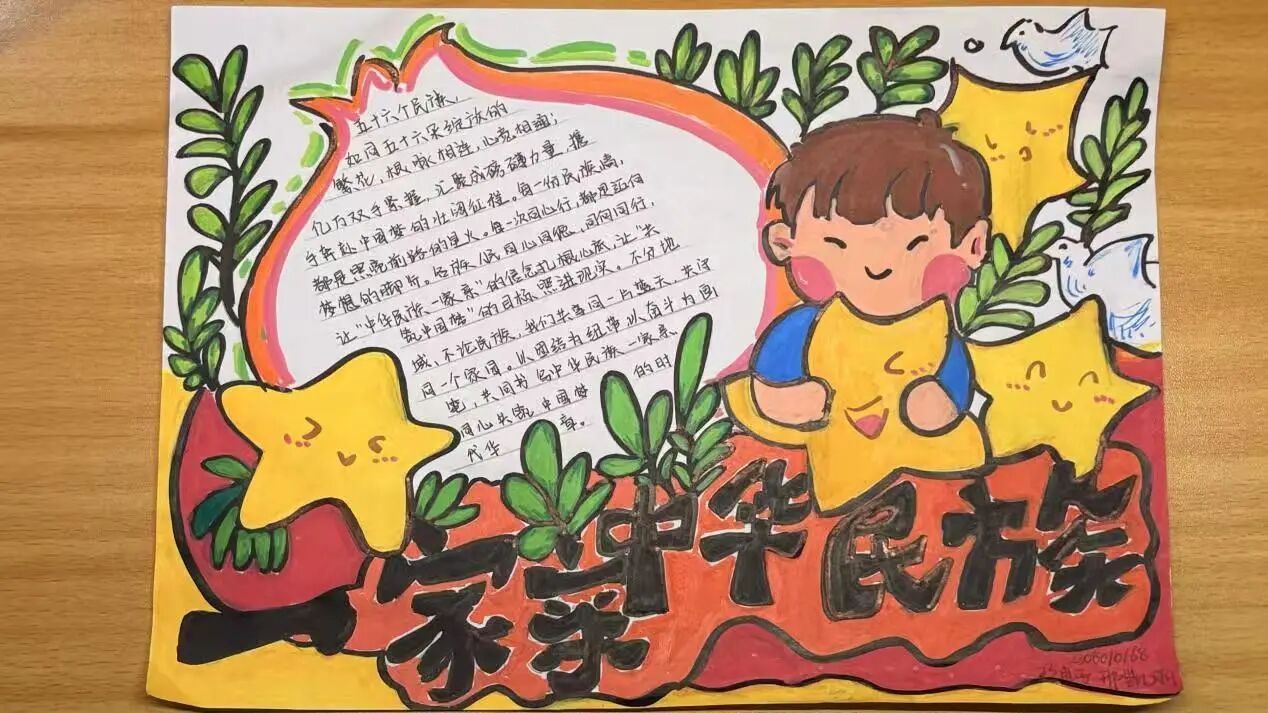 五十六个民族，
如同五十六朵绽放的
繁花，根脉相连，心意相通；
亿万双手紧握，汇聚成磅礴力量，携
手奔赴中国梦的壮阔征程。每一份民族情，
都是照亮前路的星火。每一次同心行，都是迈向
梦想的脚步。各族人民同心同德，同向同行，
让“中华民族一家亲”的信念扎根心底，让“共
筑中国梦”的目标照进现实。不分地
域、不论民族，我们共享同一片蓝天，共守
同一个家园。以团结为纽带以奋斗为
笔，共同书写中华民族一家亲
同心共筑中国梦的时
代华章。
中华民族
一家亲